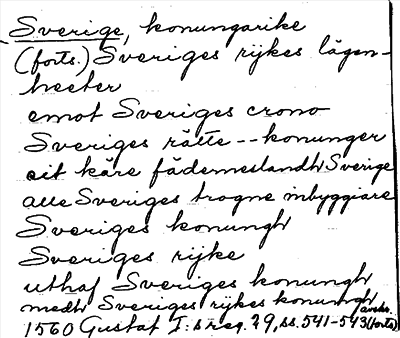 Sverige, konungarike
(forts.) Sveriges rijkes lägen-
heeter
emot Sveriges crono
Sveriges rätte -- konunger
sit käre fäderneslandh Sverige
alle Sveriges trogne inbyggiare
Sveriges konungh
Sveriges rijke
uthaf Sveriges konungh
medh Sveriges rijkes konungh
1560 Gustaf I:s reg. 29, ss. 541-543 (forts)